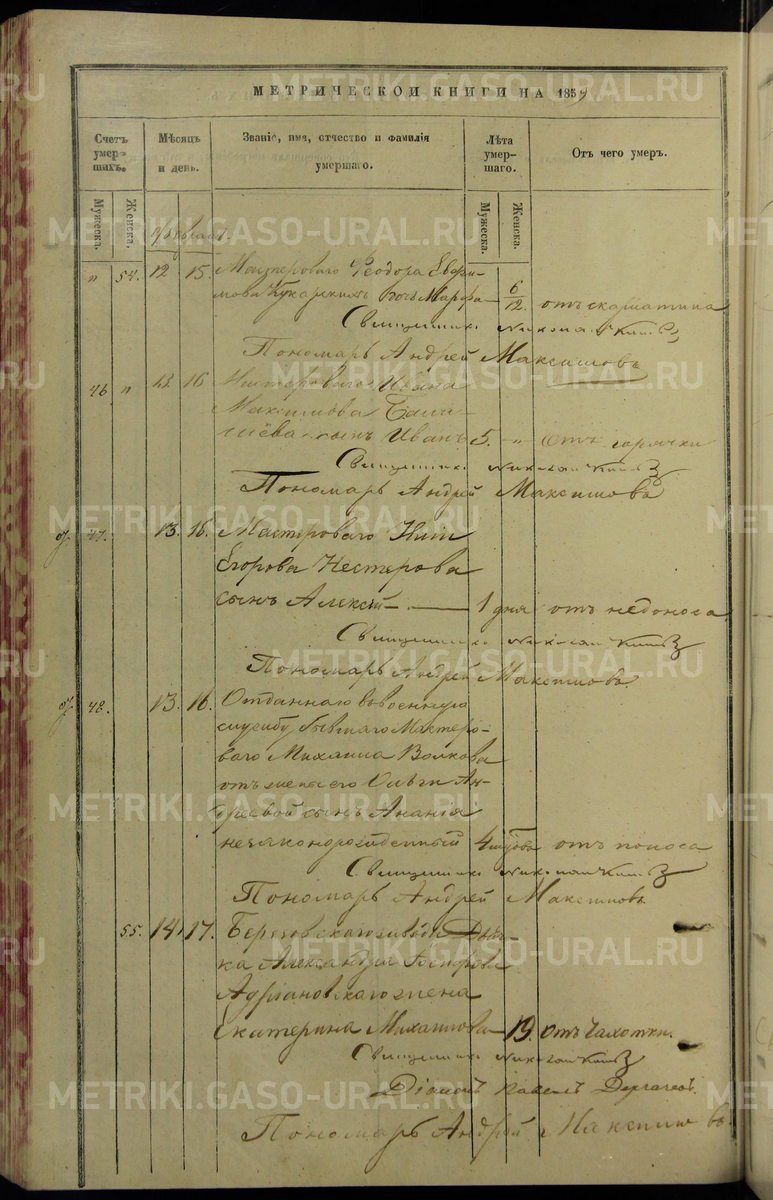 МЕТРИЧЕСКОЙ КНИГИ НА 1859
Счетъ умершихъ.
Мѣсяцъ и день.
Званіе, имя, отчество и фамилія умершаго.
Лѣта умершаго.
Отъ чего умеръ.
Мужеска.
Женска.
Мужеска.
Женска.
Февраль.
" 54. 12 15. Мастероваго Феодора Евфи-
мова дочь Марфа — 6/12. отъ скарлатина
Священникъ Николай
Пономарь Андрей Максимовъ
46. " 12 16 Мастероваго Ивана
Максимова Бала-
шёва сынъ Иванъ 5. — " — Отъ горячки
Священникъ Николай
Пономарь Андрей Максимовъ
47. 13. 16. Мастероваго
Егорова Нестерова
сынъ Алексѣй — 1 дня отъ недоноса.
Священникъ Николай
Пономарь Андрей Максимовъ.
48. 13. 16. Отданнаго въ военную
службу бывшаго Мастеро-
ваго Михаила Волкова
отъ жены его Ольги Ан-
дреевой сынъ Ананія
незаконорожденный 4 отъ поноса
Священникъ Николай
Пономарь Андрей Максимовъ.
55. 14 17. Березовскаго завода Дьяч-
ка Александра
Адріановскаго жена
Екатерина Михаилова — 19. Отъ чахотки.
Священникъ Николай
Діаконъ Павелъ
Пономарь Андрей Максимовъ.
METRIKI.GASO-URAL.RU